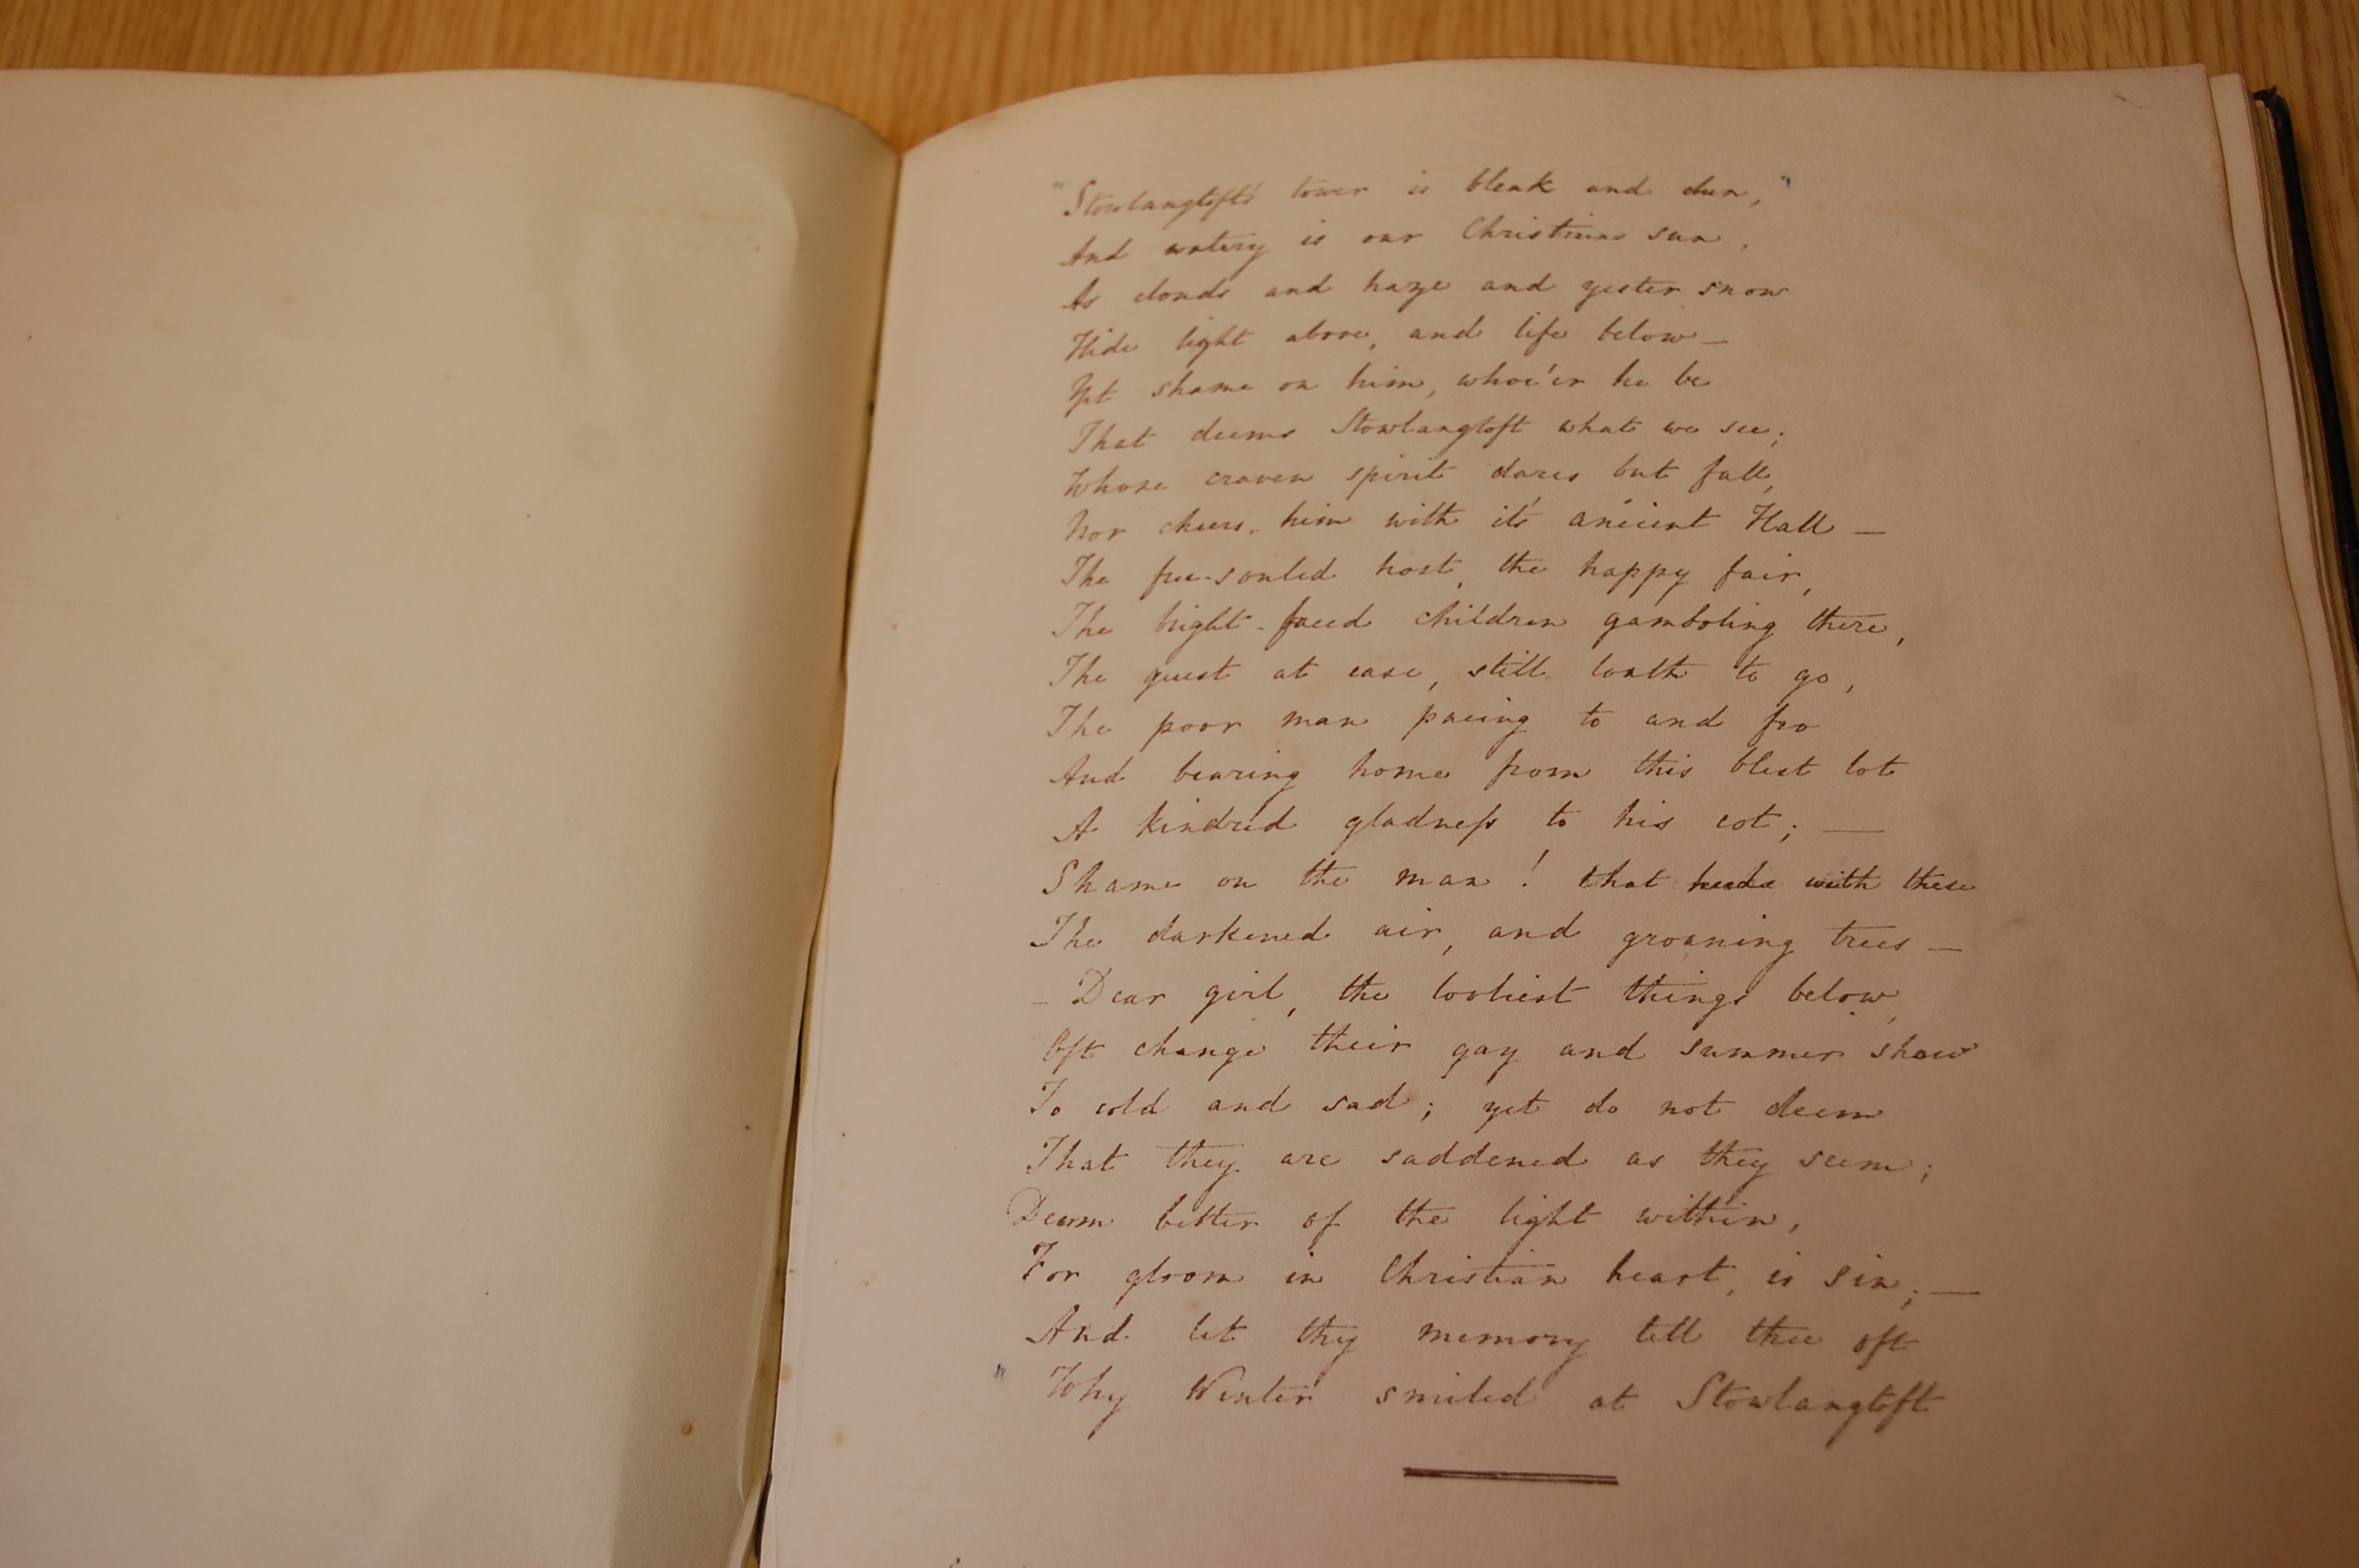 "Stowlangtoft's tower is bleak and dun,"
And watery is our Christmas sun,
As clouds and haze and yester snow
Hide light above, and life below —
Yet shame on him, whoe'er he be
That deems Stowlangtoft what we see;
Whose craven spirit dares but fall,
Nor cheers him with it's ancient Hall —
The free-souled host, the happy fair,
The bright-faced children gamboling there,
The guest at ease, still loath to go,
The poor man pacing to and fro
And bearing home from this blest lot
A kindred gladneſs to his cot; —
Shame on the man! that heeds with these
The darkened air, and groaning trees —
– Dear girl, the lovliest things below,
Oft change their gay and summer show
To cold and sad; yet do not deem
That they are saddened as they seem;
Deem better of the light within,
For gloom in Christian heart, is sin; —
And let thy memory tell thee oft
"Why Winter smiled at Stowlangtoft